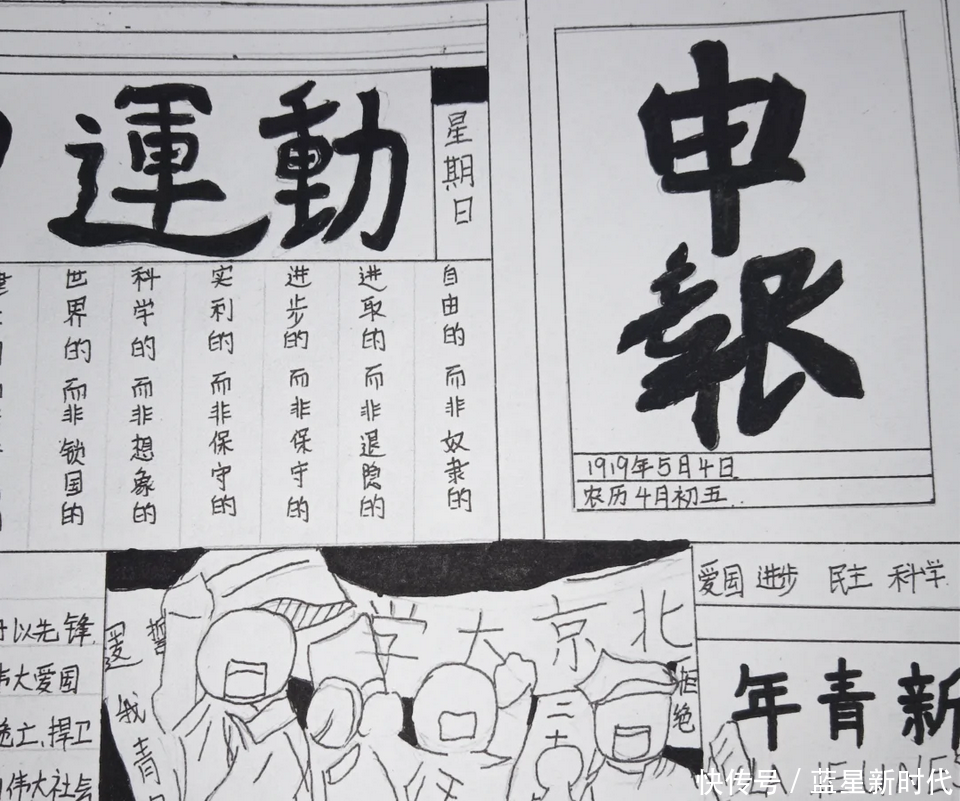 運動
星期日
申報
1919年5月4日
农历4月初五
自由的 而非奴隶的
进取的 而非退隐的
进步的 而非保守的
实利的 而非保守的
科学的 而非想象的
世界的 而非锁国的
爱国 进步 民主 科学
新青年
LA JEUNE
北京大学
拒绝
二十
誓
我青
以先锋
伟大爱国
亡,捍卫
伟大社会
快传号 / 蓝星新时代